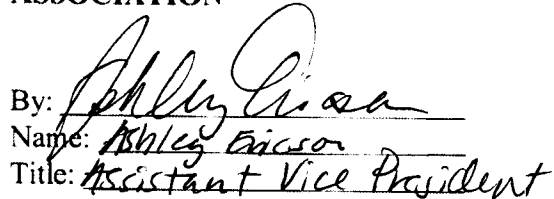 ASSOCIATION
By: Ashley Ericson
Name: Ashley Ericson
Title: Assistant Vice President